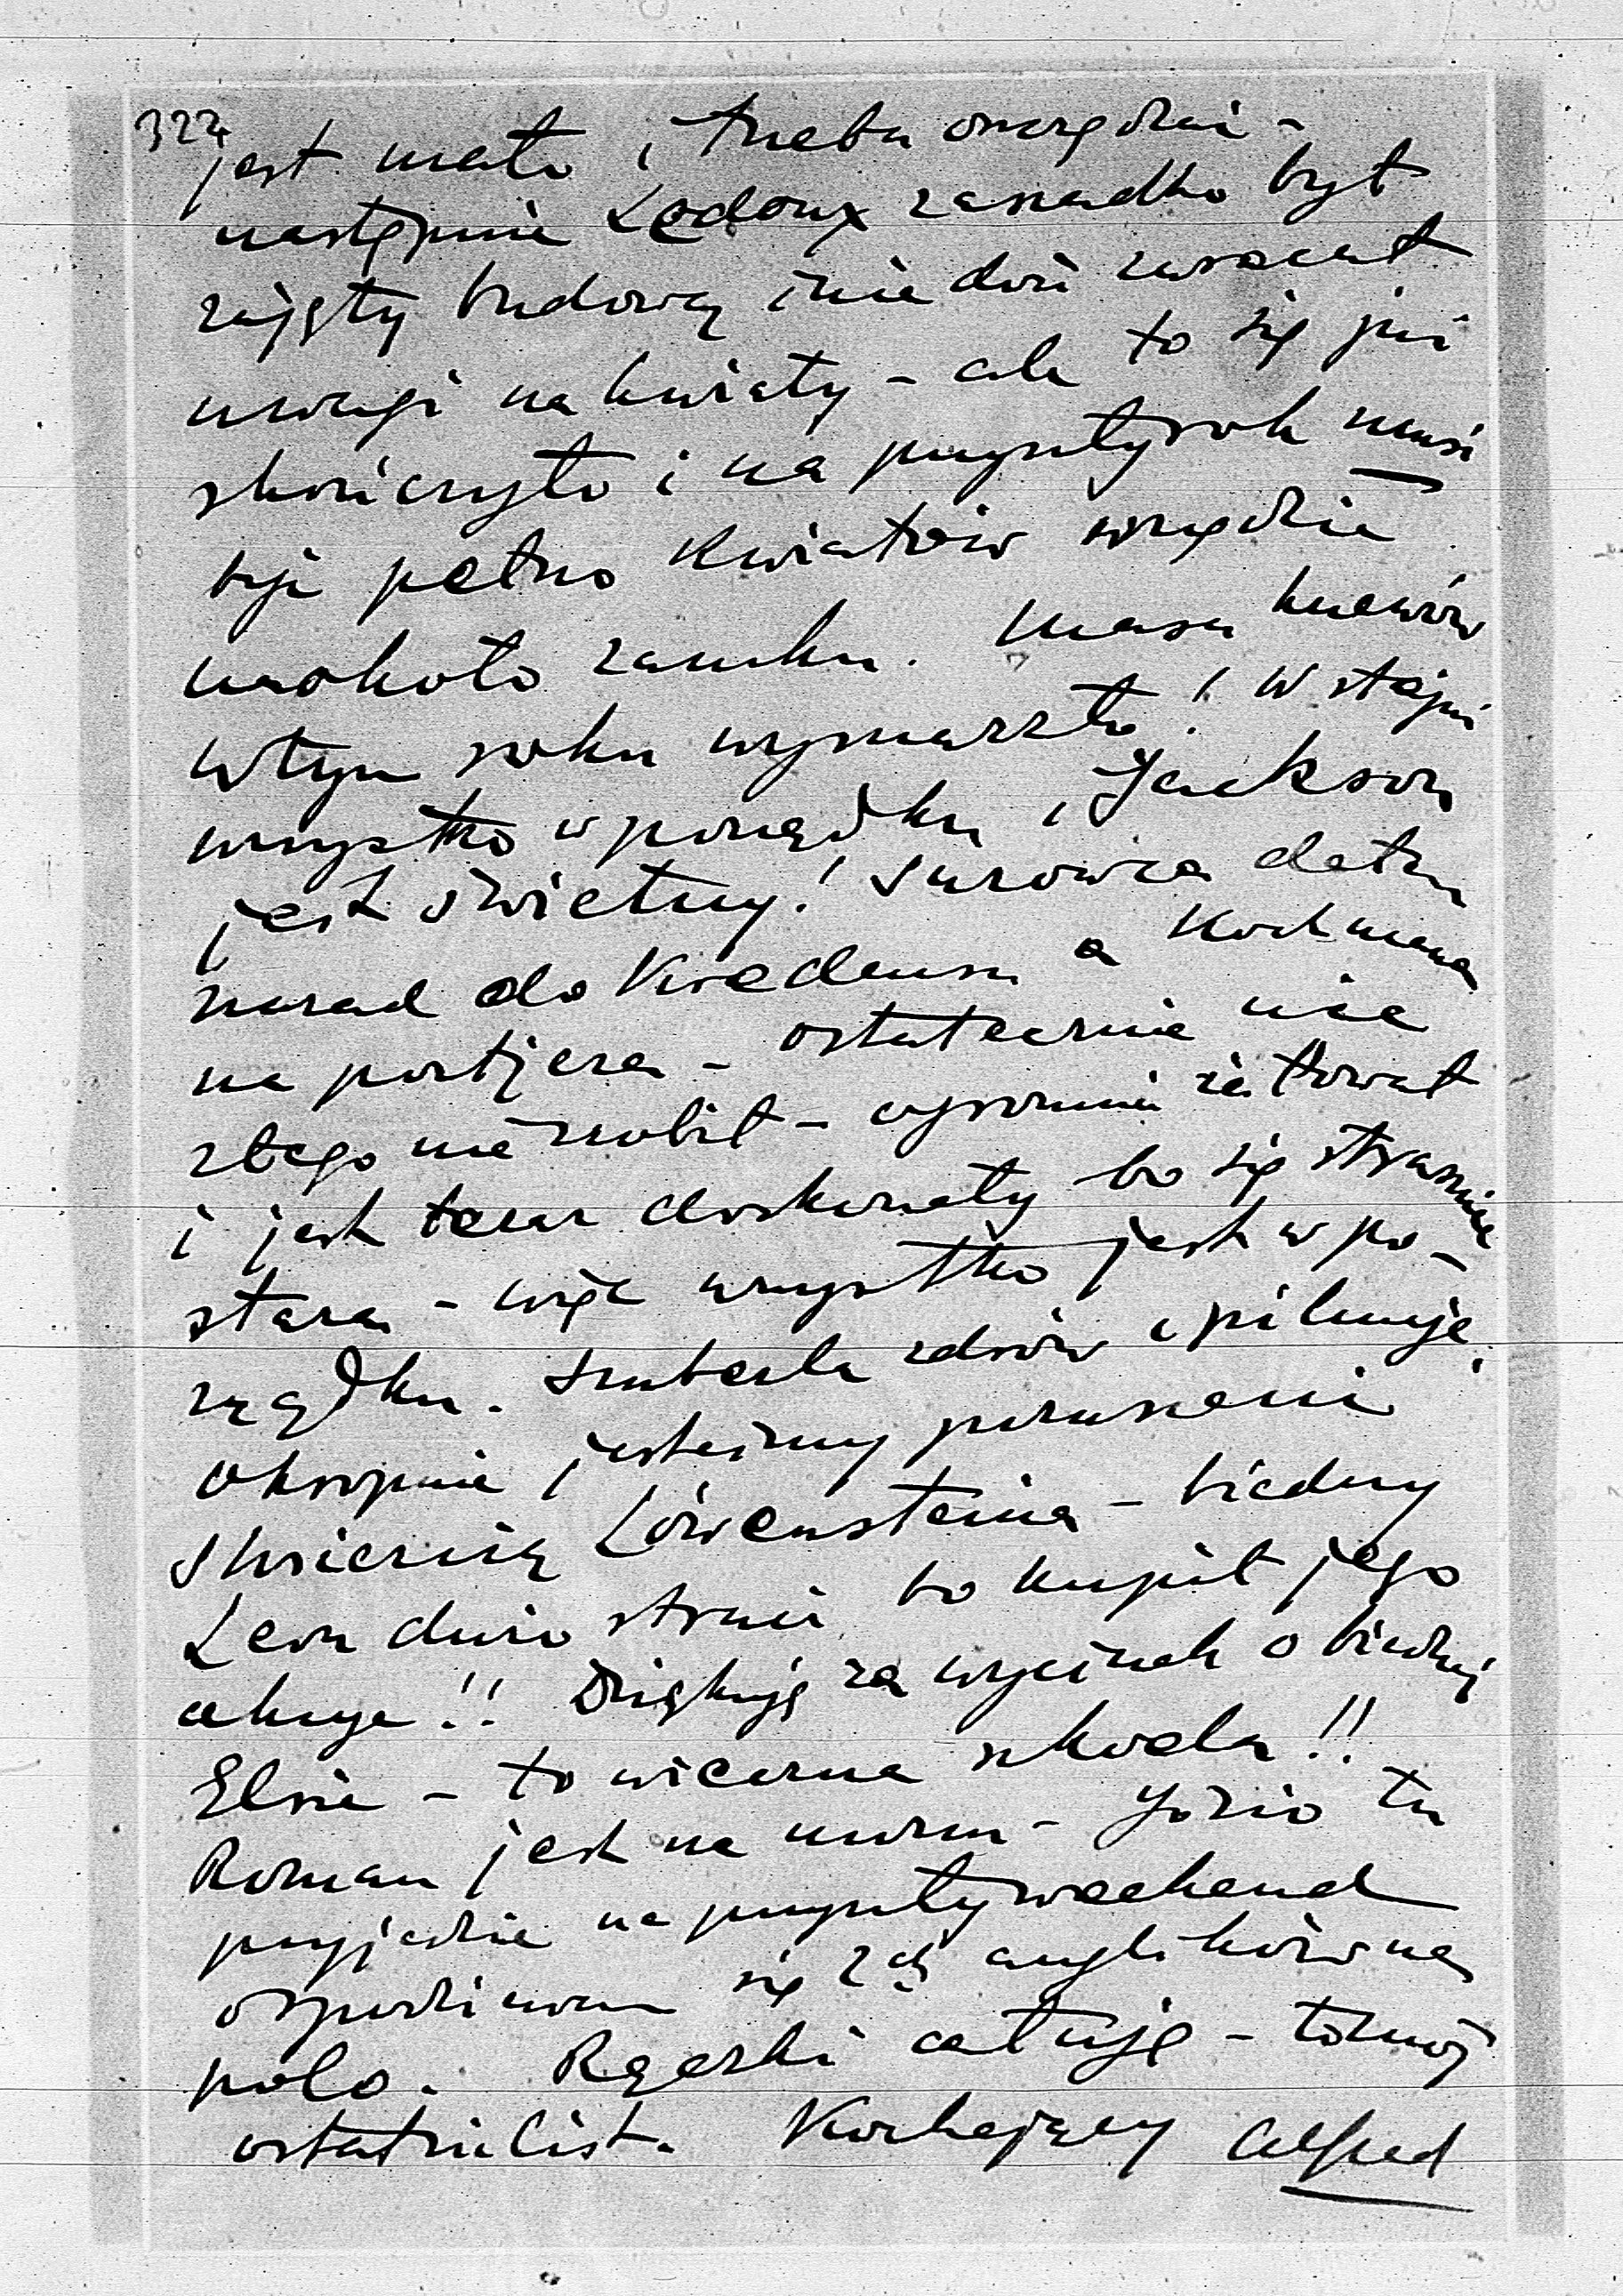 322
jest mało i trzeba oszczędzać -
następnie Ledoux zanadto był
zajęty budową i nie dość zwracał
uwagi na kwiaty - ale to się już
skończyło i na przyszły rok musi
być pełno kwiatów wszędzie
naokoło zamku. Masa krzewów
w tym roku wymarzło! W stajni
wszystko w porządku, Jackson
jest świetny! Surowca dałem
nazad do Kredensu a Kochmana
na portjera - ostatecznie nic
złego nie zrobił - ogromnie żałował
i jest teraz doskonały bo się strasznie
stara - więc wszystko jest w po-
rządku. Szubela zdrów i pilnuje.
Okropnie jesteśmy poruszeni
śmiercią Löwensteina - biedny
Leon dużo straci bo kupił jego
akcje!! Dziękuję za wycinek o biednej
Elsie - to wieczna szkoda!!
Roman jest na morzu - Józio tu
przyjedzie na przyszły weekend
i spodziewam się 2ch anglików na
polo. Rączki całuję - to mój
ostatni list. Kochający Alfred